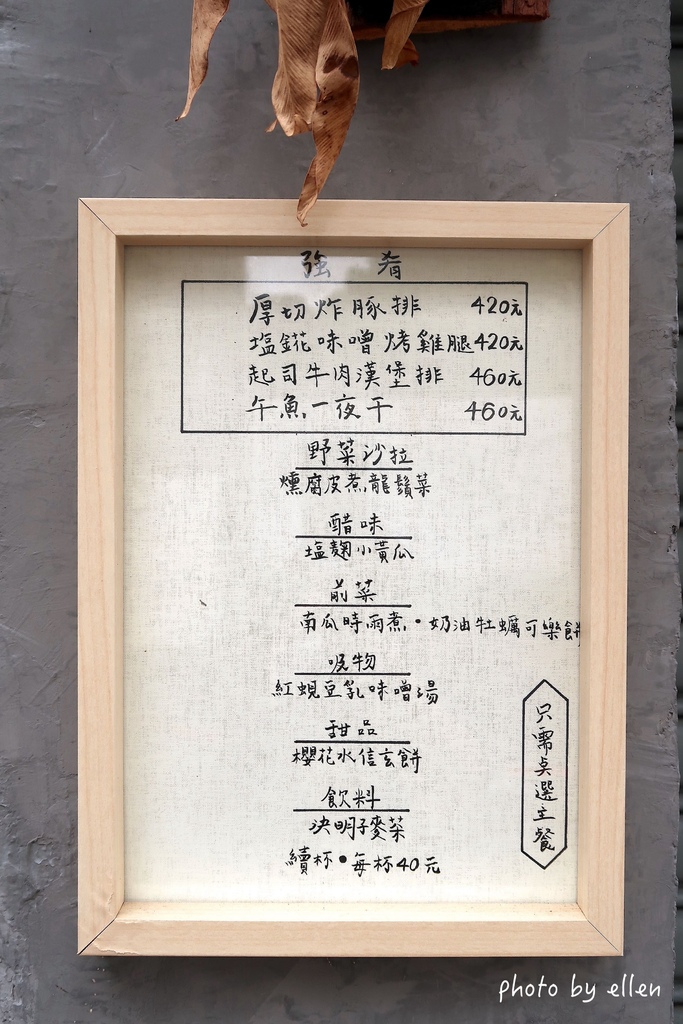 強 肴
厚切炸豚排 420元
塩錵味噌烤雞腿 420元
起司牛肉漢堡排 460元
午魚一夜干 460元
野菜沙拉
燻腐皮煮龍鬚菜
醋味
塩麴小黃瓜
前菜
南瓜時雨煮•奶油牡蠣可樂餅
吸物
紅蜆豆乳味噌湯
甜品
櫻花水信玄餅
飲料
決明子麥菜
續杯•每杯40元
只需桌選主餐
photo by ellen